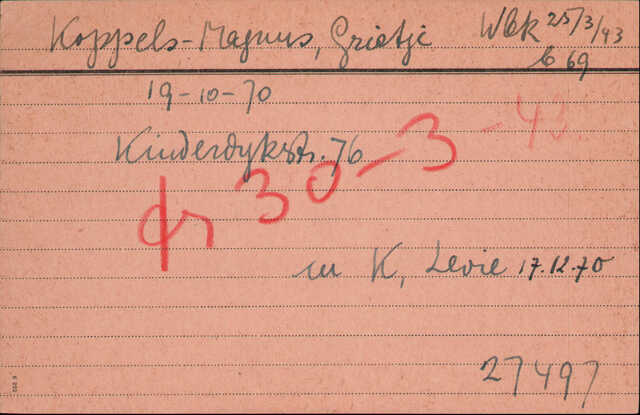 Koppels-Magnus, Grietje Wbk 25/3/43
b 69
19-10-70
Kinderdykstr. 76
30-3-43
m K, Levie 17.12.70
27497